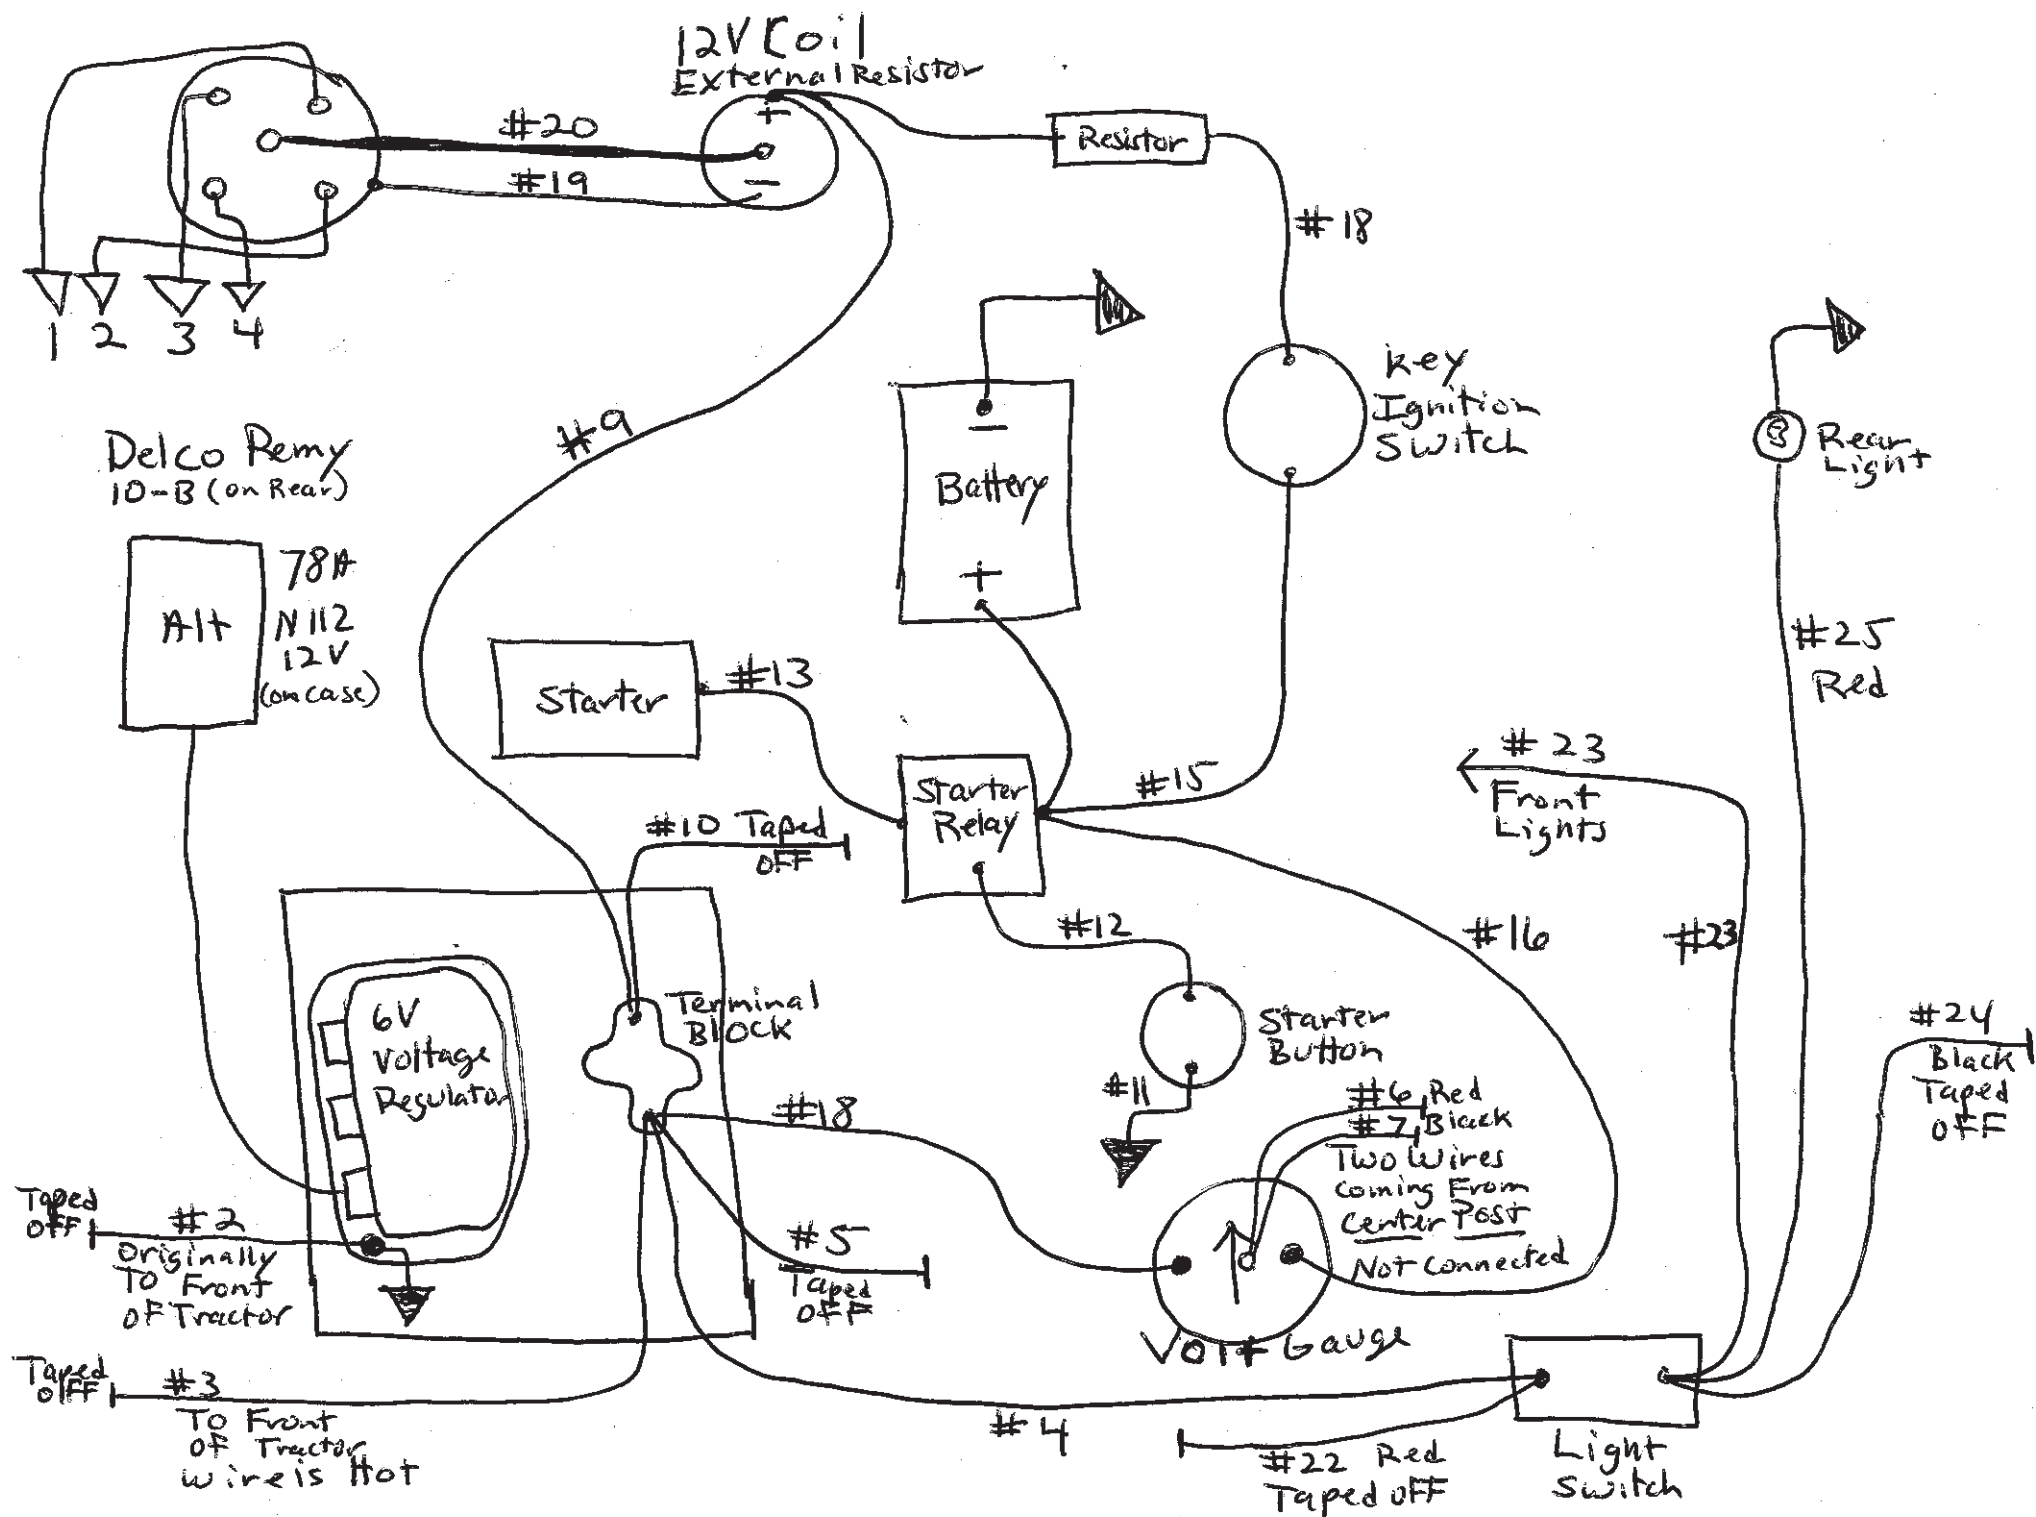 12V Coil
External Resistor
+
-
#20
#19
Resistor
#18
1 2 3 4
Key
Ignition
Switch
-
Battery
+
#9
Delco Remy
10-B (on Rear)
Alt
78A
N112
12V
(on case)
Rear
Light
#25
Red
Starter
#13
Starter
Relay
#15
#23
Front
Lights
#10 Taped
OFF
#12
#16
#23
6V
Voltage
Regulator
Terminal
BLOCK
Starter
Button
#11
#24
Black
Taped
OFF
#18
#6 Red
#7 Black
Two Wires
Coming From
Center Post
Not Connected
Taped
OFF
#2
Originally
To Front
OF Tractor
#5
Taped
OFF
Volt Gauge
Taped
OFF
#3
To Front
OF Tractor
wire is Hot
#4
#22 Red
Taped OFF
Light
Switch